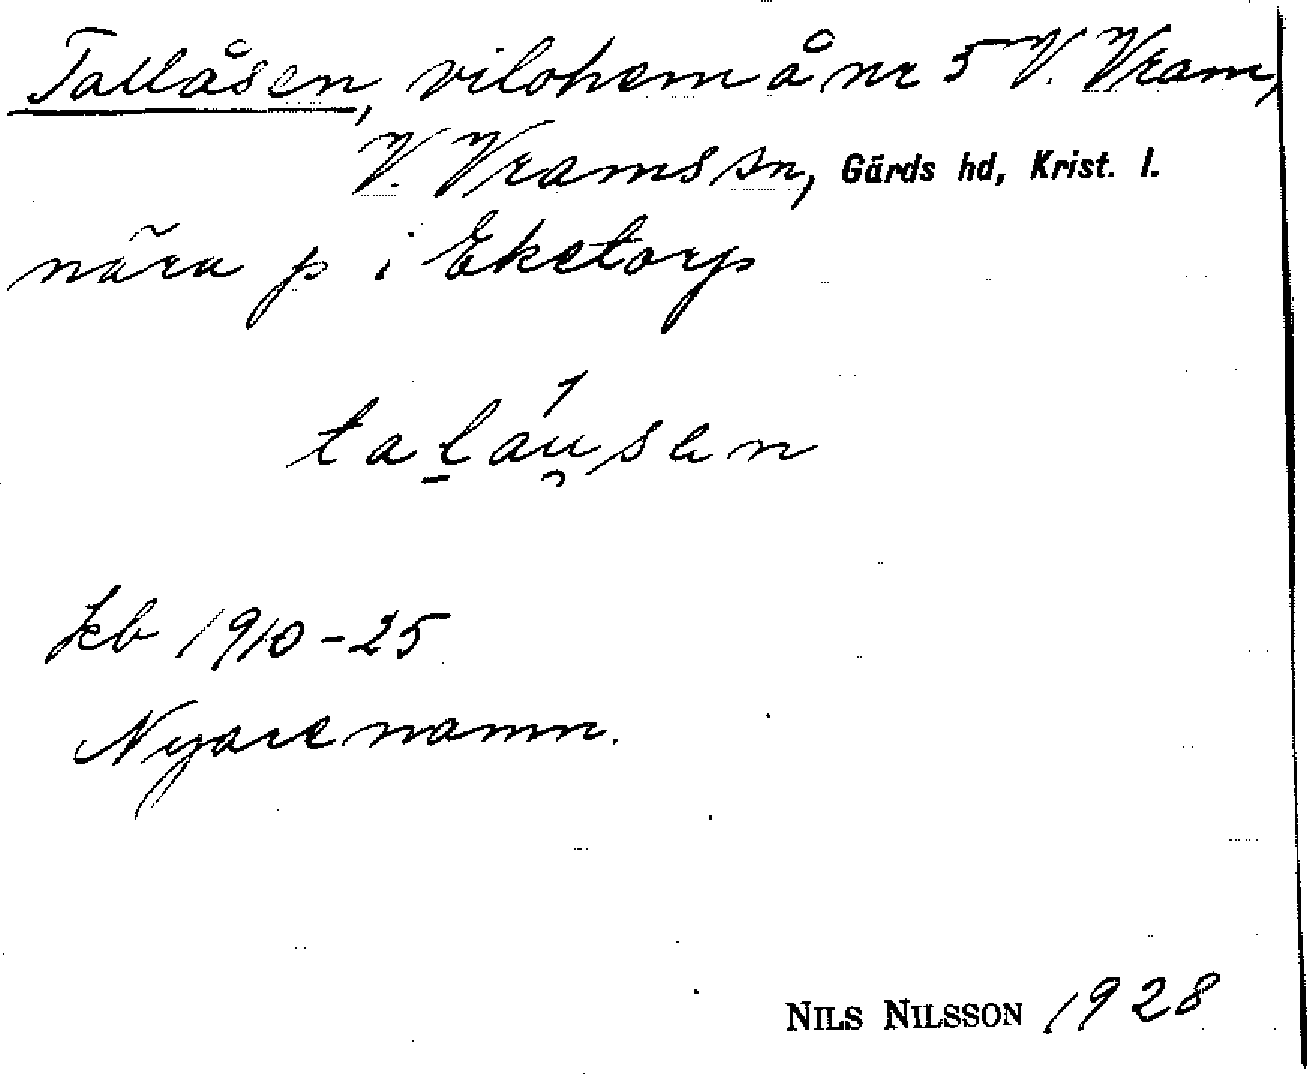 Tallåsen, vilohem å nr 5 V. Vram,
V. Vrams sn, Gärds hd, Krist. l.
nära p i Eketorp
taláu̯sen
kb 1910-25
Nyare namn.
NILS NILSSON 1928